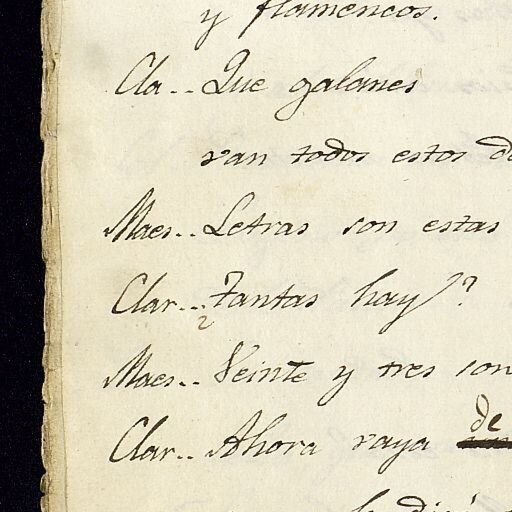 y flamencos.
Cla.. Que galanes
van todos estos
Maes.. Letras son estas
Clar... Tantas hay?
Maes.. Veinte y tres son
de
Clar.. Ahora vaya